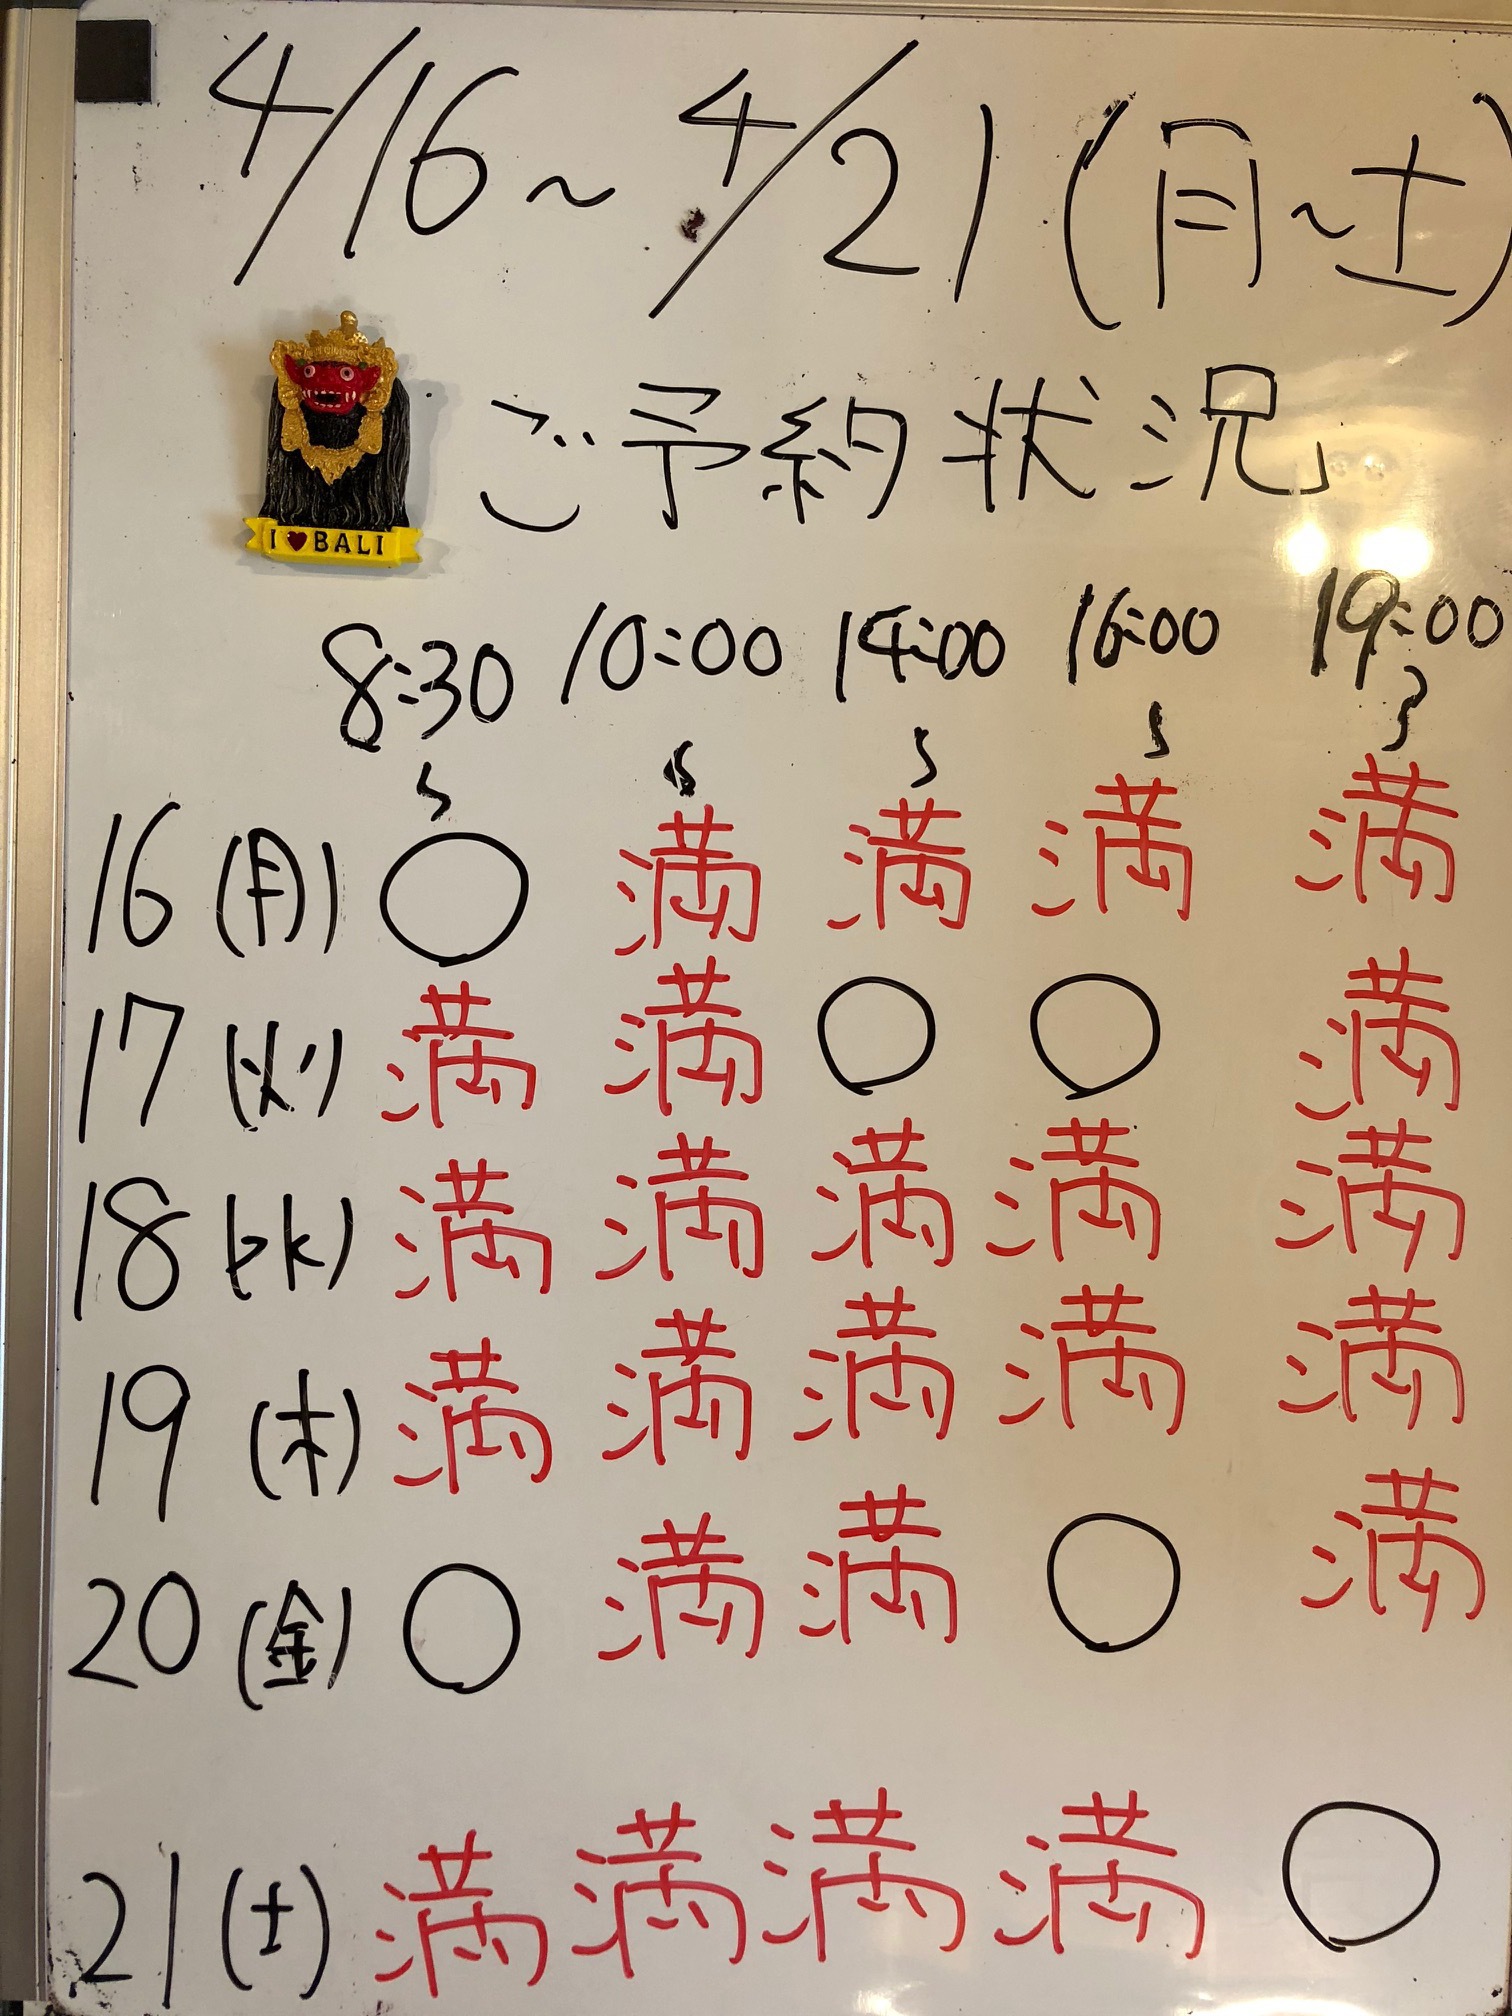 4/16～4/21(月～土)
ご予約状況」
I ♥ BALI
8:30 10:00 14:00 16:00 19:00
16(月) ○ 満 満 満 満
17(火) 満 満 ○ ○ 満
18(水) 満 満 満 満 満
19(木) 満 満 満 満 満
20(金) ○ 満 満 ○ 満
21(土) 満 満 満 満 ○